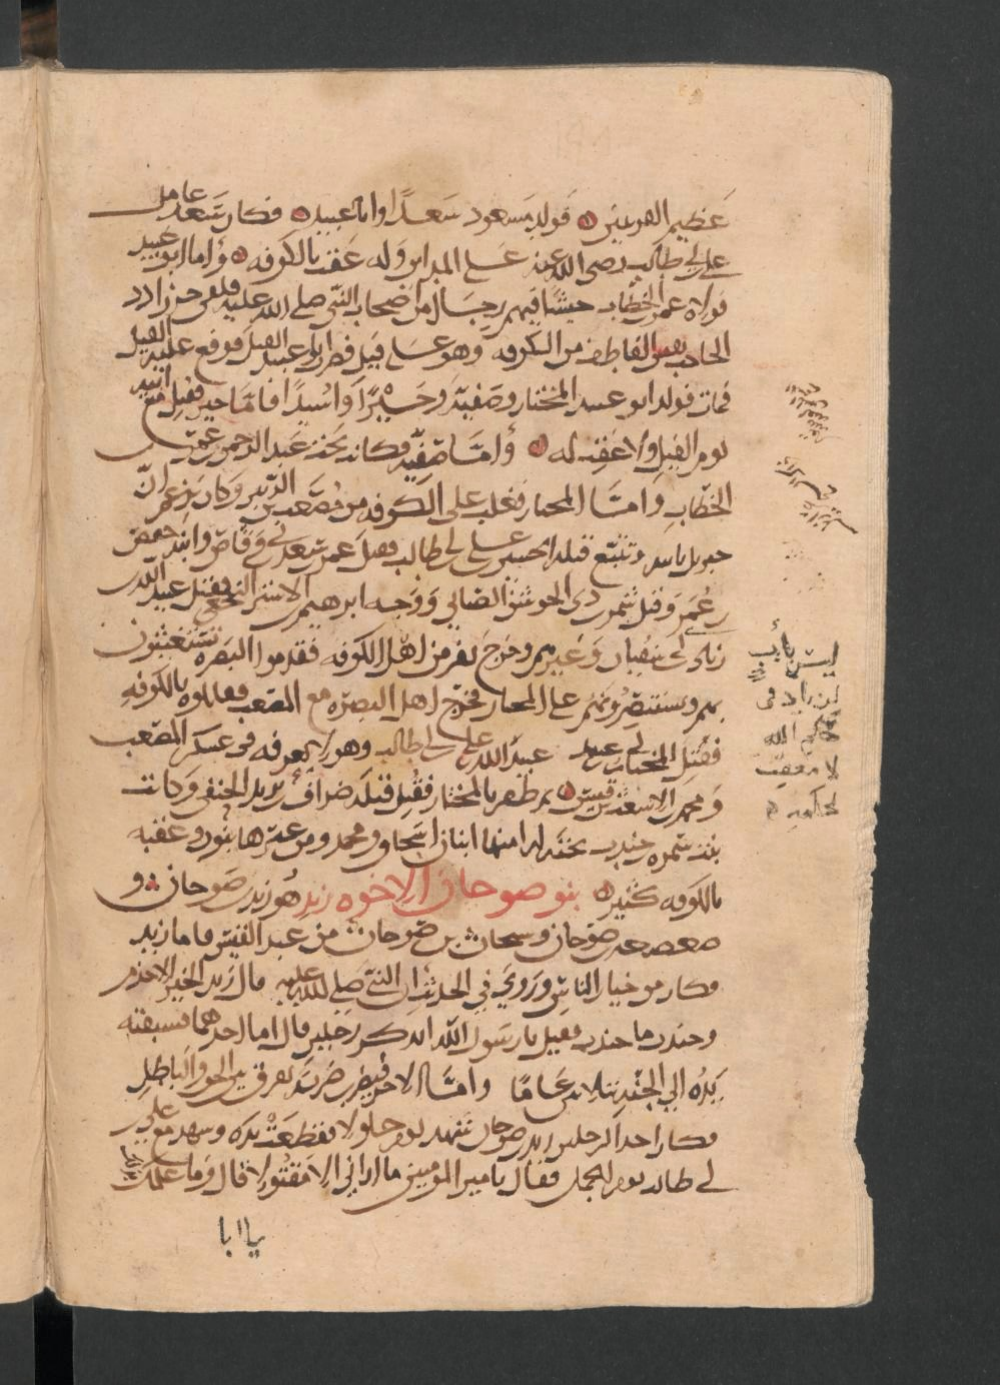 عظيم القريتين فولد مسعود سعدًا وابا عبيد فكان سعد عامل
علي بن ابي طالب رضي الله عنه على المداين وله عقب بالكوفه واما ابو عبيد
فولاه عمر بن الخطاب جيشًا فيهم رجال من اصحاب النبي صلى الله عليه فلقي حرزاد
الحاجب بقس الناطف من الكوفه وهو على فيل فضرب ابو عبيد الفيل فوقع عليه الفيل
فمات فولد ابو عبيد المختار وصفيّة وجبرًا واسيدًا فاما جبر فقتل مع ابيه
يوم الفيل ولا عقب له وأما صفيّه فكانت تحت عبد الله بن عمر بن
الخطاب وامّا المختار فغلب على الكوفه من مصعب بن الزبير وكان يزعم انّ
جبريل ياتيه وتتبّع قتلة الحسين بن علي بن ابي طالب فقتل عمر بن سعد بن ابي وقاص وابنه حفص
بن عمر وقتل شمر بن ذي الجوشن الضبابي ووجه ابرهيم بن الاشتر النخعي فقتل عبيد الله بن
زياد بن ابي سفيان وغيرهم وخرج نفر من اهل الكوفه فقدموا البصره يستغيثون
بهم ويستنصرونهم على المختار فخرج اهل البصره مع المصعب فقاتلوه بالكوفه
فقُتِل المختار بن ابي عبيد عبيد الله بن علي بن ابي طالب وهو لا يعرفه في عسكر المصعب
ومحمد بن الاشعث بن قيس ثم ظفر بالمختار فقُتِل قتله ضراف بن يزيد الحنفي وكانت
بنت سمره بن جندب تحته له منها ابنان اسحاق ومحمد ومن غيرها بنون وعقبه
بالكوفه كثير بنو صوحان الاخوه زيد هو زيد بن صوحان و
صعصعه بن صوحان وسيحان بن صوحان من عبد القيس فاما زيد
فكان من خيار الناس ورَوَي في الحديث ان النبي صلى الله عليه قال زيد الخير الاجذم
وجندب ما جندب فقيل يا رسول الله اتذكر رجلين قال اما احدهما فسبقته
يَدُه الى الجنّه بثلاثين عامًا وامّا الاخر فيضرب ضربة يفرق بين الحق والباطل
فكان احد الرجلين زيد بن صوحان شهد يوم جلولا فقطعت يده وشهد مع علي بن
ابي طالب يوم الجمل فقال يا امير المومنين ما اراني الا مقتولا قال وما علمك
يا ابا